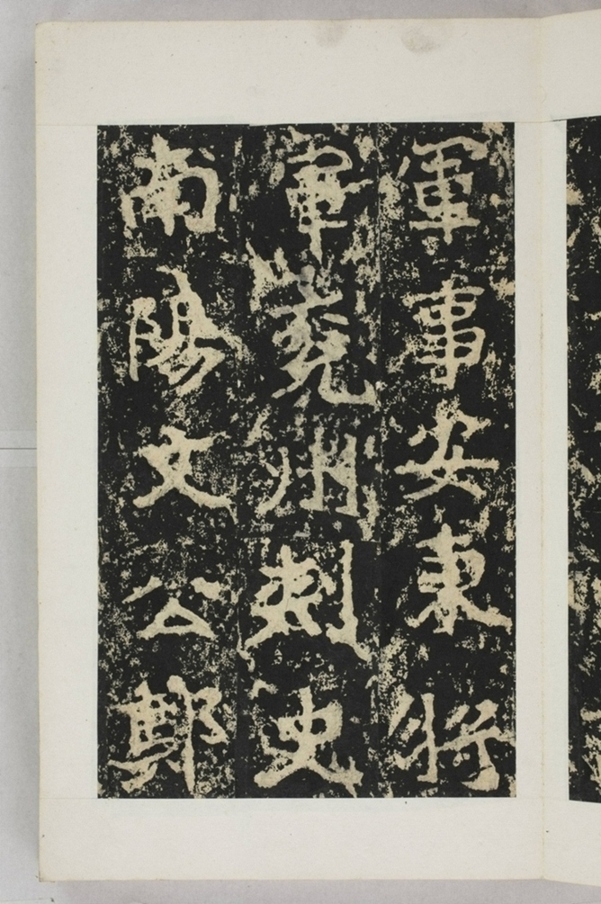 軍事安東將
軍兗州刺史
南陽文公鄭